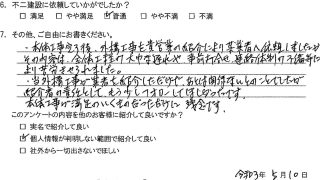 6. 不二建設に依頼していかがでしたか？
□ 満足 □ やや満足 ☑ 普通 □ やや不満 □ 不満
7. その他、ご自由にお書きください。
・本体工事完了後、外構工事を貴営業の紹介により某業者へ依頼しましたが
その内容は、全体工程の大やな遅れや事前打合せ、連絡体制の不備等に
より苦労させられました。
・当外構工事が業者を紹介しただけで、あとは関係ないとのことでしたが
紹介者の責任として、もう少しフォローしてほしかったです。
本体工事が満足のいくものだっただけに残念です。
このアンケートの内容を他のお客様に紹介して良いですか？
□ 実名で紹介して良い
☑ 個人情報が判明しない範囲で紹介して良い
□ 社外から一切出さないでほしい
令和3年 5月10日